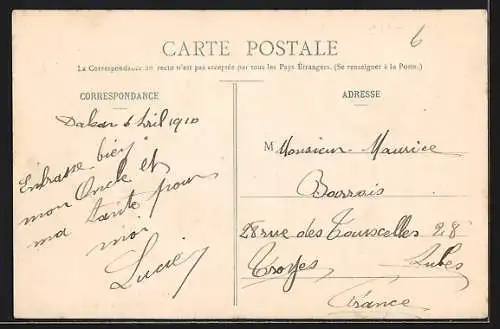 6
CARTE POSTALE
La Correspondance au recto n'est pas acceptée par tous les Pays Étrangers. (Se renseigner à la Poste.)
CORRESPONDANCE
Dakar 6 Avril 1910
Embrasse bien
mon Oncle et
ma tante pour
moi
Lucie
ADRESSE
M Monsieur Maurice
Barrois
28 rue des Tourscelles 28
Troyes Aubes
France